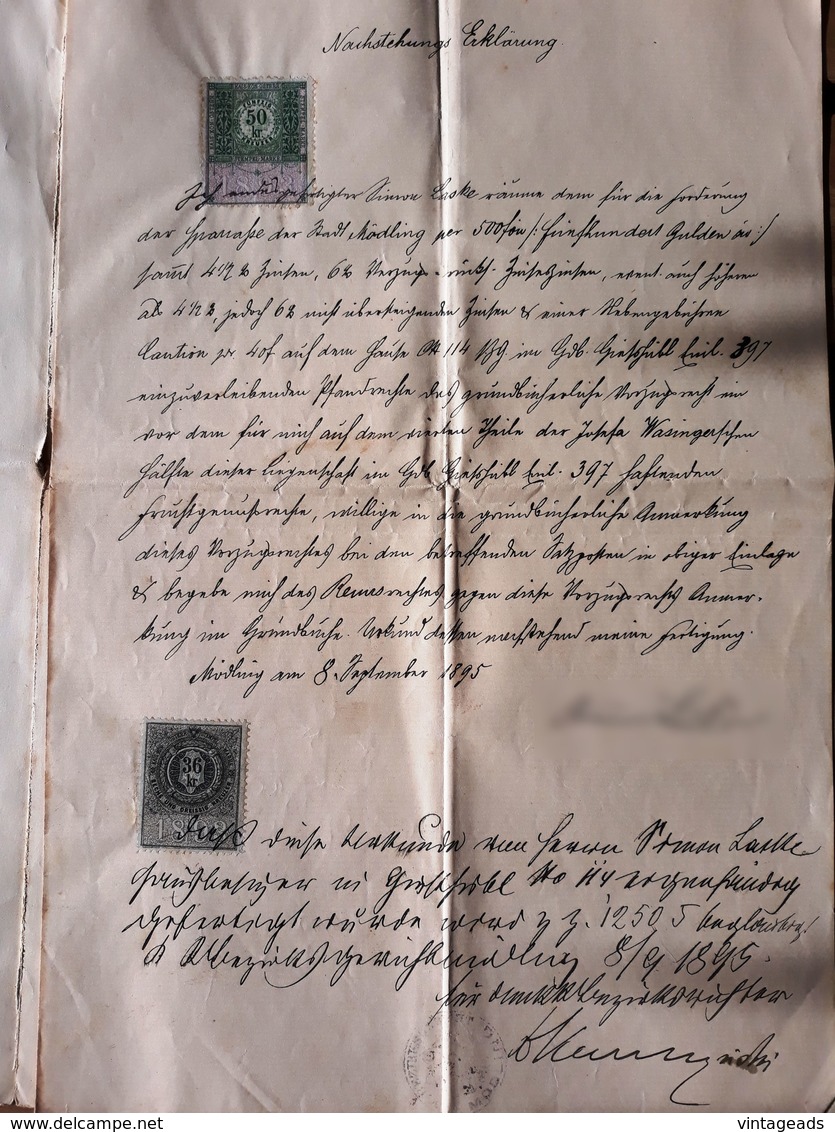 Nachstehungs Erklärung.
50
kr
Ich endesgefertigter Simon Laske räume dem für die Forderung
der Sparcasse der Stadt Mödling per 500 /: Fünfhundert Gulden öw :/
sammt 4½% Zinsen, 6% Verzugs- Zinseszinsen, event. auch höheren
als 4½%, jedoch 6% nicht übersteigenden Zinsen & einer Nebengebühren
Caution pr. 40f auf dem Hause 114 im Gdb. Giesshübl Einl. 397
einzuverleibenden Pfandrechte das grundbücherliche Vorzugsrecht ein
vor dem für mich auf dem vierten Theile der Josefa Wasinger'schen
Hälfte dieser Liegenschaft im Gdb Giesshübl Einl. 397 haftenden
Fruchtgenußrechte, willige in die grundbücherliche Anmerkung
dieses Vorzugsrechtes bei den betreffenden Satzposten in obiger Einlage
& begebe mich des Recursrechtes gegen diese Vorzugsrechts Anmer-
kung im Grundbuche. Urkund dessen nachstehend meine Fertigung.
Mödling am 8. September 1895
36
kr.
Daß diese Urkunde von Herrn Simon Laske
Hausbesitzer in Giesshübl No 114 eigenhändig
gefertigt wurde wird z. 12505 beglaubigt
KK Bezirksgericht Mödling 8/9 1895.
für den kk Bezirksrichter
vintageads